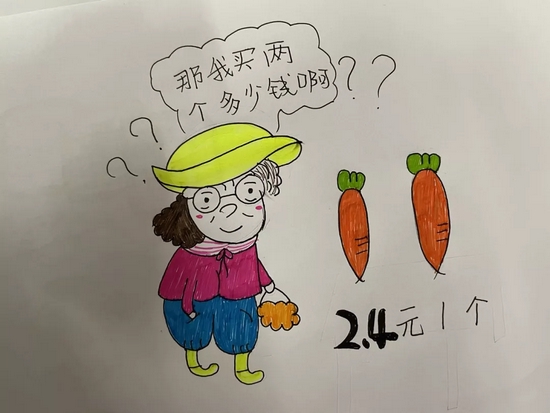 那我买两
个多少钱啊
? ?
? ?
2.4元1个